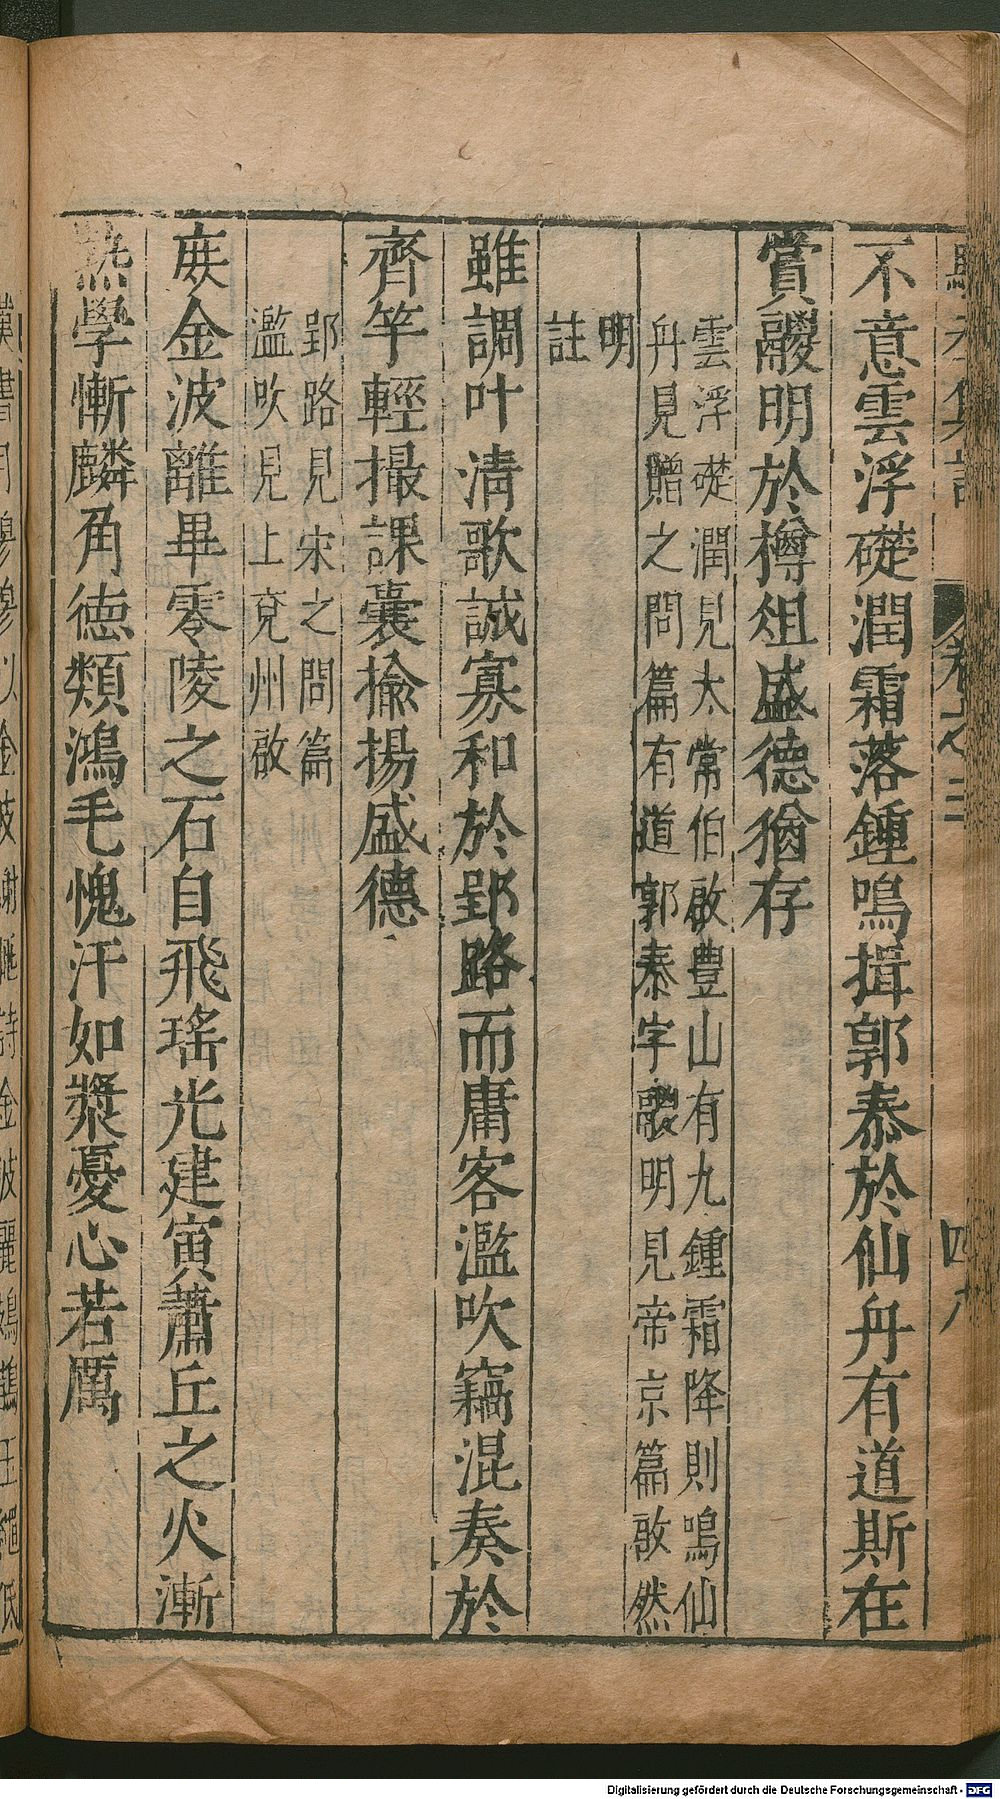 卷之三
不意雲浮礎潤霜落鍾鳴揖郭泰於仙舟有道斯在
賞鬷明於樽俎盛德猶存
雲浮礎潤見太常伯啟豐山有九鍾霜降則鳴仙
舟見贈之問篇有道郭泰字鬷明見帝京篇啟然
明
註
雖調叶清歌誠寡和於郢路而庸客濫吹竊混奏於
齊竽輕撮課囊揄揚盛德
郢路見宋之問篇
濫吹見上兗州啟
庶金波離畢零陵之石自飛瑤光建寅蕭丘之火漸
熱學慚麟角德類鴻毛愧汗如漿憂心若厲
Digitalisierung gefördert durch die Deutsche Forschungsgemeinschaft - DFG